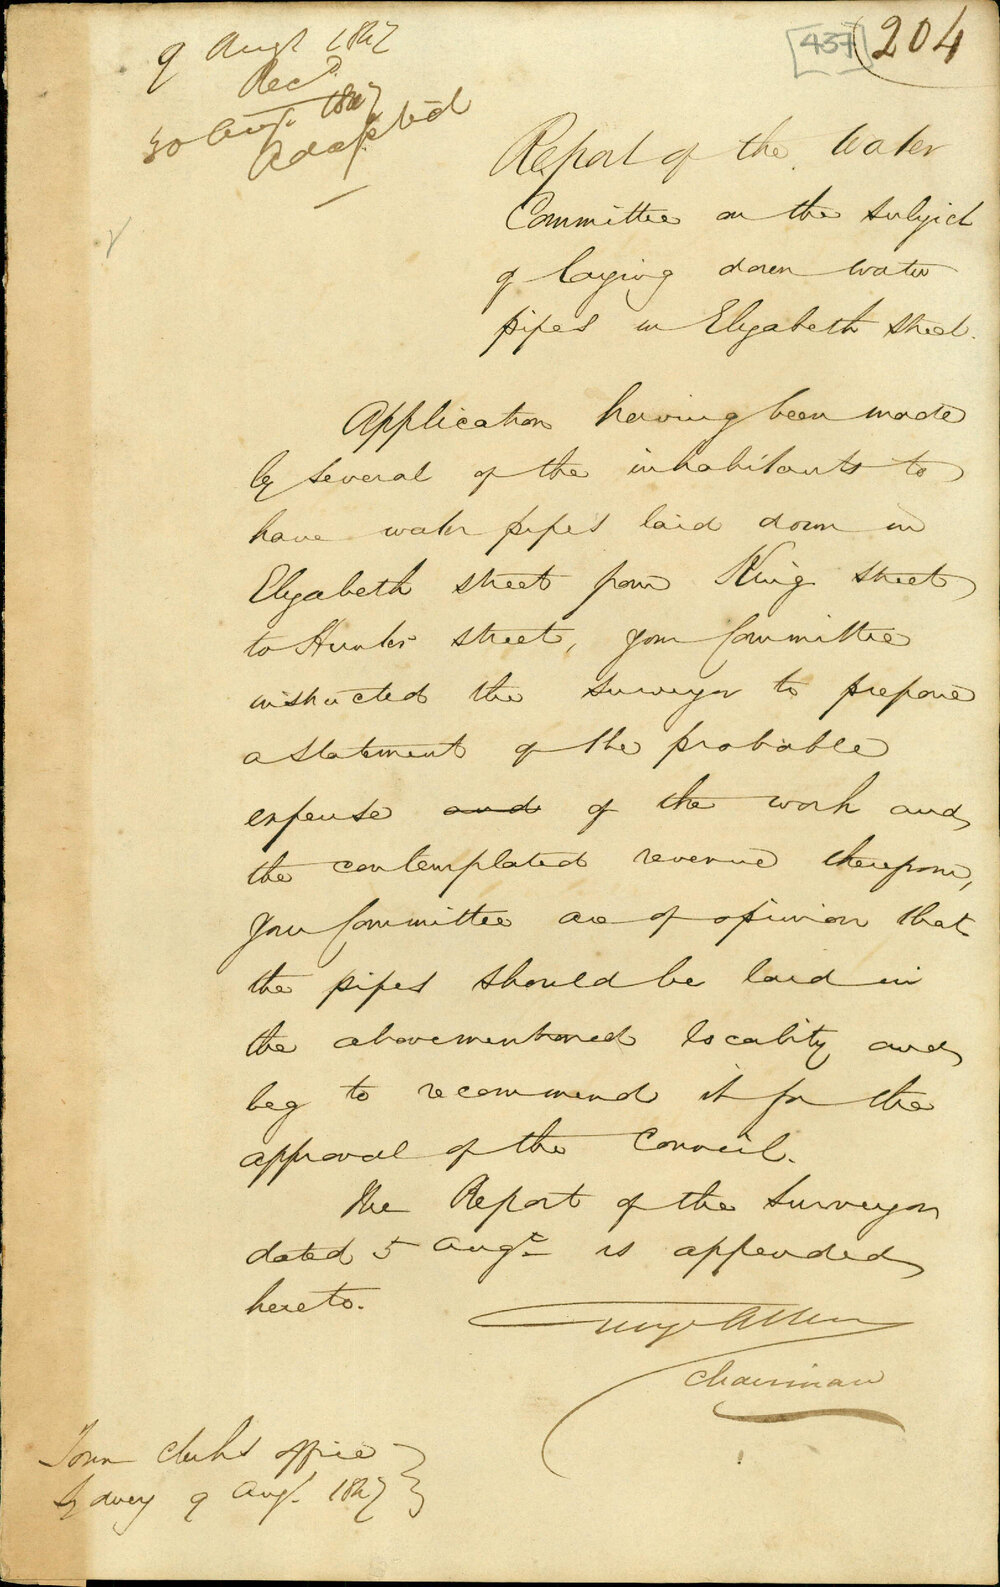 9 Augt 1847
Recd.
30 Augt. 1847
Adopted
[437] 204
Report of the Water
Committee on the subject
of laying down water
pipes in Elizabeth street.
Application having been made
by several of the inhabitants to
have water pipes laid down in
Elizabeth street from King street
to Hunter street, your Committee
instructed the surveyor to prepare
a statement of the probable
expense and of the work and
the contemplated revenue therefrom,
your Committee are of opinion that
the pipes should be laid in
the abovementioned locality and
beg to recommend it for the
approval of the Council.
The Report of the Surveyor
dated 5 Augt is appended
hereto.
George Allen
Chairman
Town Clerks office
Sydney 9 Augt. 1847